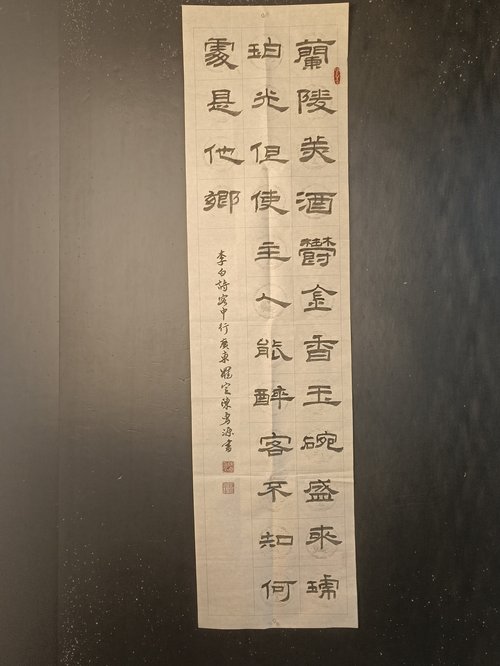 蘭陵美酒鬱金香玉碗盛來琥
珀光但使主人能醉客不知何
處是他鄉
李白詩客中行廣東羅定陳書